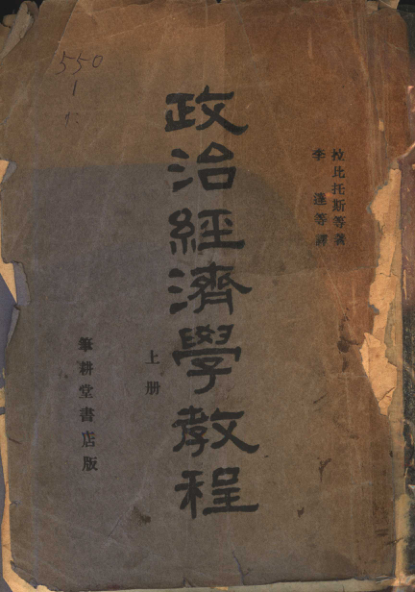 拉比托斯等著
李達等譯
政治經濟學教程
上册
筆耕堂書店版
550
1